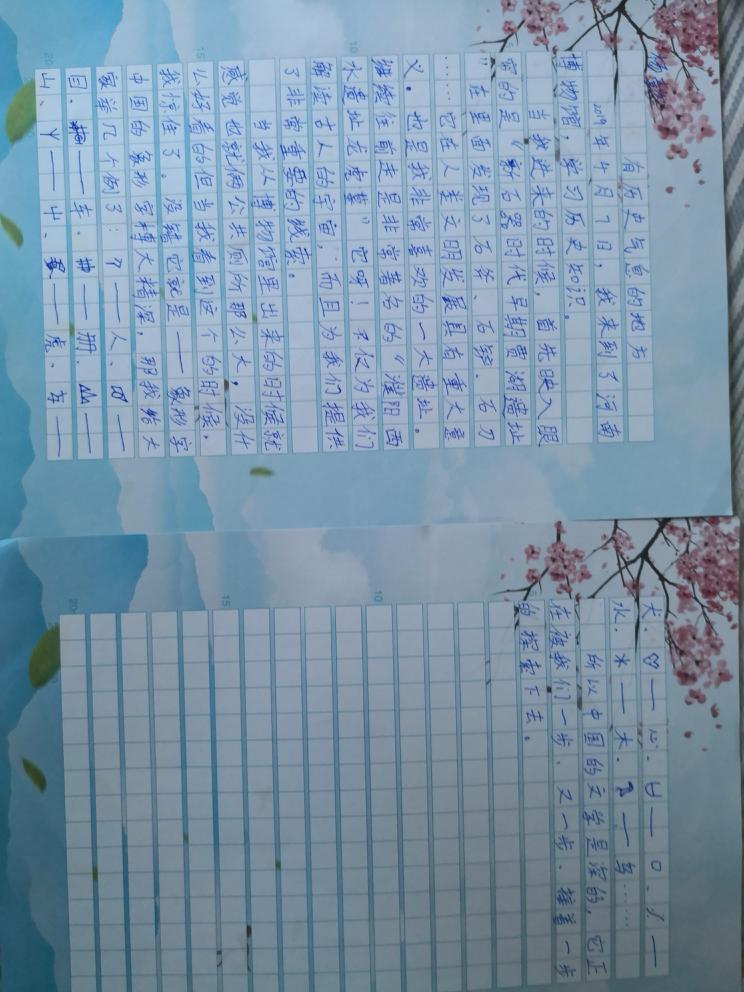 有历史气息的地方
2019年4月7日，我来到了河南
博物馆，学习历史知识。
当我进来的时候，首先映入眼
帘的是《新石器时代早期贾湖遗址
”在里面发现了石斧、石铲、石刀
……它在人类文明发展具有重大意
义。也是我非常喜欢的一大遗址。
继续往前走是非常著名的《濮阳西
水遗址龙虎墓》它呀！不仅为我们
解读古人的宇宙，而且为我们提供
了非常重要的线索。
当我从博物馆里出来的时候就
感觉也就个公共厕所那么大，没什
么好看的但当我看到这个的时候，
我惊住了。没错它就是——象形字
中国的象形字博大精深，那我给大
家举几个例子：——人、——
目、——车、——册、——
山、丫——、——虎、——
犬、——心、——口、——
水、——木、——鸟……
所以中国的文学是深的，它正
在废我们一步，又一步，接着一步
的探索下去。
5
10
15
20
10
15
20